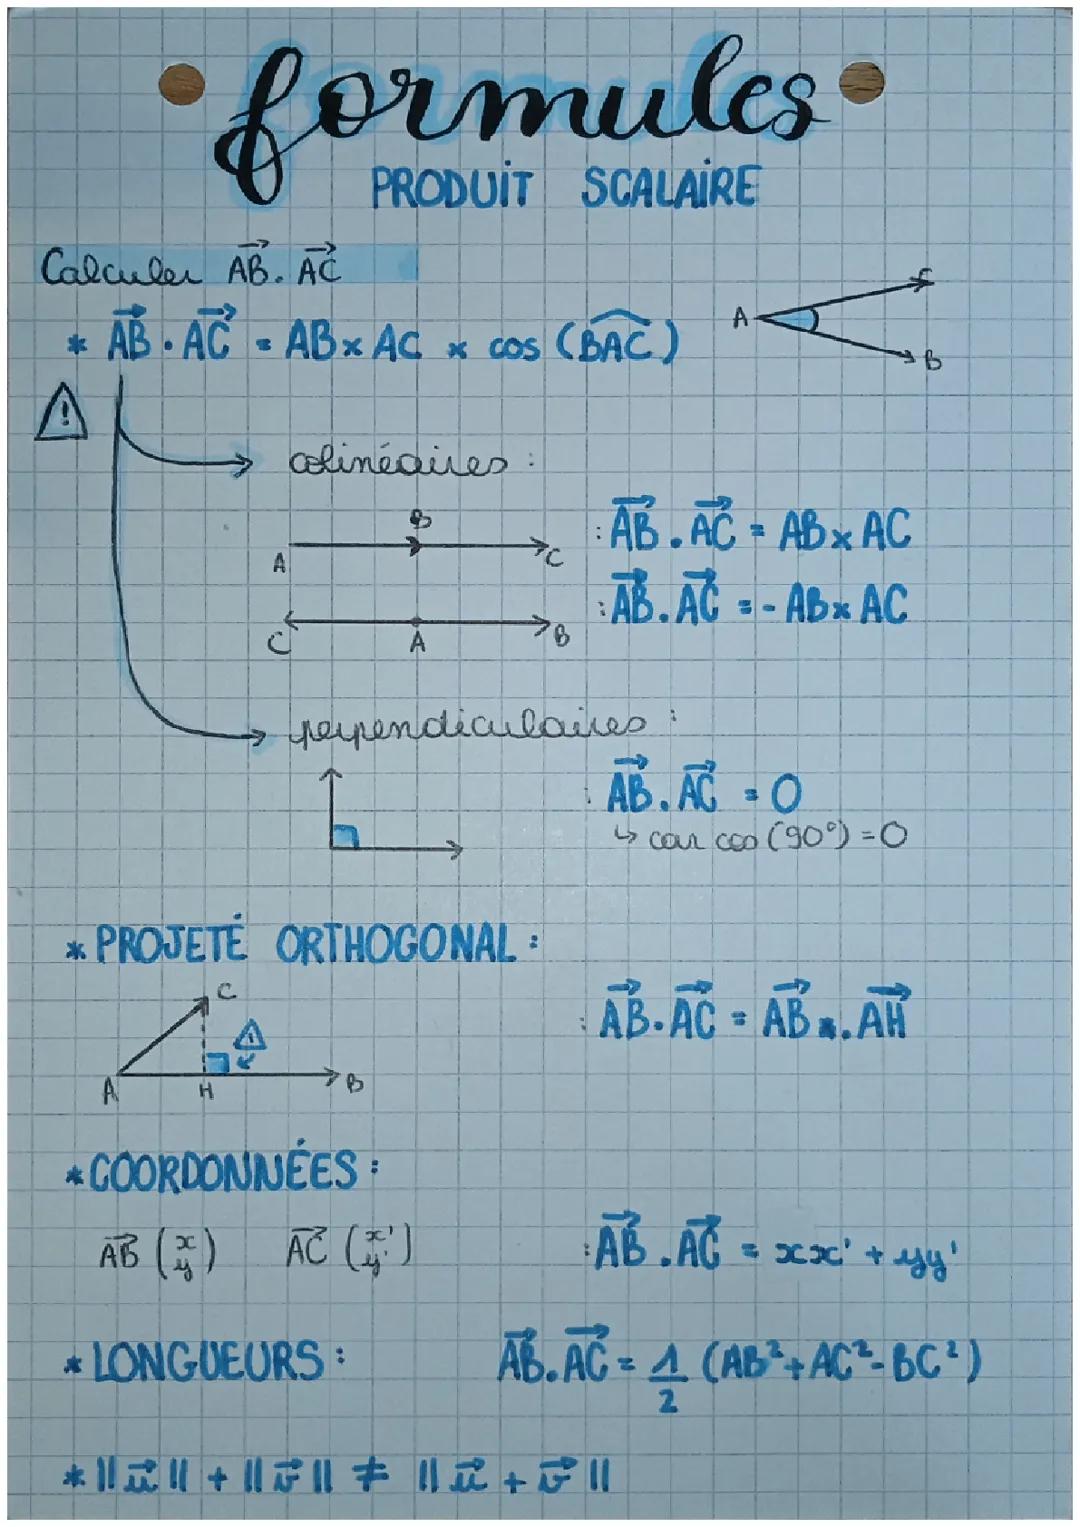 formules
PRODUIT SCALAIRE
Calculer AB⃗. AC⃗
C
A
B
* AB⃗ . AC⃗ = AB x AC x cos (BAC̑)
!
colinéaires :
B
A
C
: AB⃗ . AC⃗ = AB x AC
C
A
B
: AB⃗ . AC⃗ = - AB x AC
perpendiculaires :
: AB⃗ . AC⃗ = 0
↳ car cos (90°) = 0
* PROJETÉ ORTHOGONAL :
C
!
A
H
B
: AB⃗ . AC⃗ = AB⃗ . AH⃗
* COORDONNÉES :
AB⃗ (x y) AC⃗ (x' y') : AB⃗ . AC⃗ = xx' + yy'
* LONGUEURS : AB⃗ . AC⃗ = 1/2 (AB² + AC² - BC²)
* || u⃗ || + || v⃗ || ≠ || u⃗ + v⃗ ||